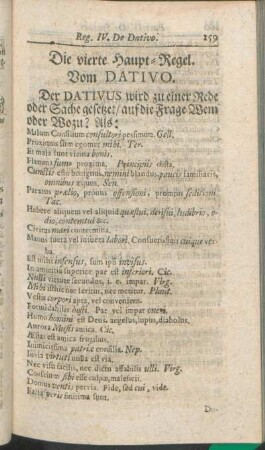 Reg. IV. De Dativo. 159
Die vierte Haupt-Regel.
Vom DATIVO.
Der DATIVUS wird zu einer Rede
oder Sache gesetzet/ auf die Frage Wem
oder Wozu? Als:
Malum Consilium consultori pessimum. Gell.
Proximus sum egomet mihi. Ter.
Et mala sunt vicina bonis.
Flamma fumo proxima. Principiis obsta.
Cunctis esto benignus, nemini blandus, paucis familiaris,
omnibus æquus. Sen.
Paratus prælio, pronus offensioni, promptus seditioni
Tac.
Habere aliquem vel aliquid quæstui, derisui, ludibrio, o-
dio, contemtui &c.
Civitas mari contermina.
Manus sueta vel insueta labori. Consuetissima cuique ver-
ba.
Est mihi insensus, sum ipsi invisus.
In amicitia superior par est inferiori. Cic.
Nulli virtute secundus, i. e. impar. Virg.
Mihi istuc nec seritur, nec metitur. Plaut.
Vestis corpori apta, vel conveniens.
Formidabilis hosti. Par vel impar oneri.
Homo homini est Deus, angelus, lupus, diabolus.
Aurora Musis amica. Cic.
Æstas est amica frugibus.
Inimicissima patriæ consilia. Nep.
Invia virtuti nulla est via.
Nec visu facilis, nec dictu affabilis ulli. Virg.
Conscium sibi esse culpæ, maleficii.
Domus ventis pervia. Fido, sed cui, vide.
Facta